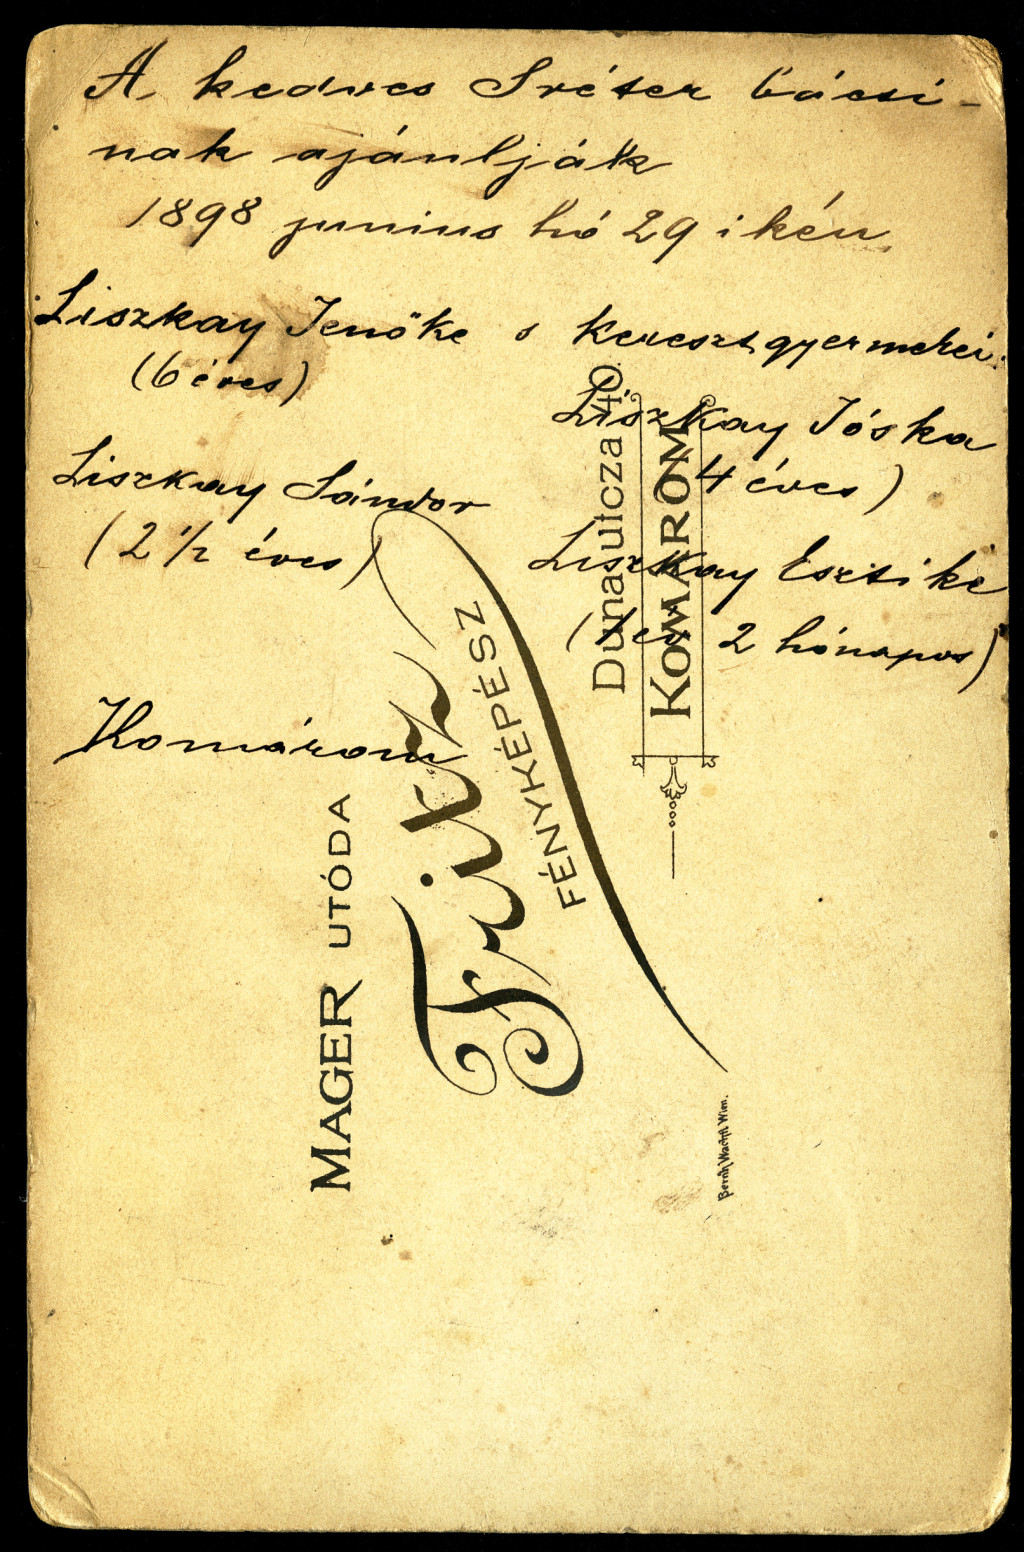 A kedves Sréter bácsi-
nak ajánlják
1898 junius hó 29 ikén
Liszkay Jenőke s keresztgyermekei.
(6 éves)
Liszkay Jóska
4 éves)
Liszkay Sándor
(2 1/2 éves)
Liszkay Esztike
2 hónapos)
Komárom
MAGER UTÓDA
Fritz
FÉNYKÉPÉSZ
Dunautcza 40.
KOMÁROM
Bernh. Wachtl Wien.